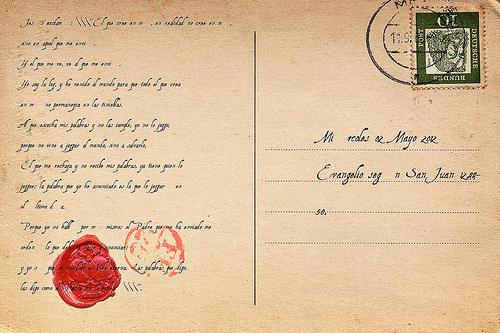 Jes clamam : \\\"El que cree en m , en realidad no cree en m ,
sino en aquel que me envi .
Y el que me ve, ve al que me envi .
Yo soy la luz, y he venido al mundo para que todo el que crea
en m no permanezca en las tinieblas.
Al que escucha mis palabras y no las cumple, yo no lo juzgo,
porque no vine a juzgar al mundo, sino a salvarlo.
El que me rechaza y no recibe mis palabras, ya tiene quien lo
juzgue: la palabra que yo he anunciado es la que lo juzgar en
el ltimo d a.
Porque yo no habl por m mismo: el Padre que me ha enviado me
orden lo que deb anunciar;
y yo s que su mandato es Vida eterna. Las palabras que digo,
las digo como el Padre me lo orden \\\".
Mi rcoles 02 Mayo 2012
Evangelio seg n San Juan 12,44-
50.
11.9.
DEUTSCHE
BUNDES
POST
10